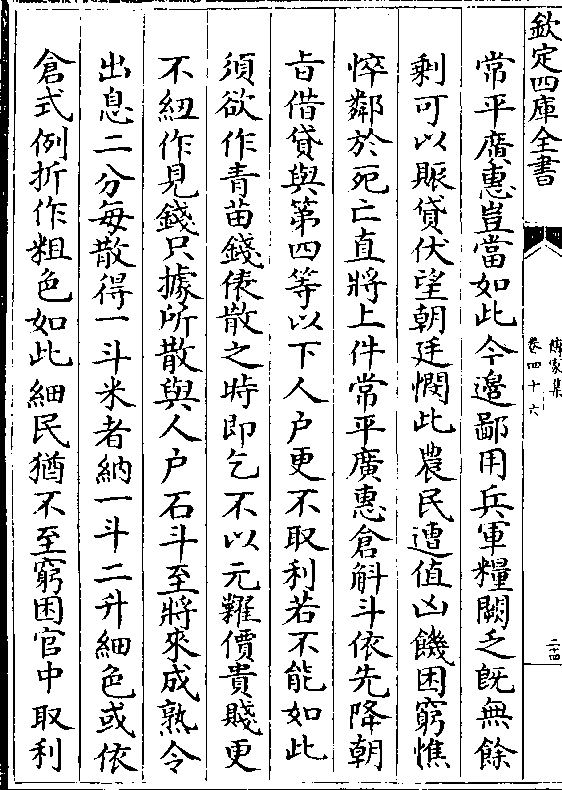 欽定四庫全書
傳家集
卷四十六
二十四
常平廣惠豈當如此今邊鄙用兵軍糧闕乏既無餘
剩可以賑貸伏望朝廷憫此農民遭值凶饑困窮憔
悴鄰於死亡直將上件常平廣惠倉斛斗依先降朝
㫖借貸與第四等以下人户更不取利若不能如此
須欲作青苗錢俵散之時即乞不以元糴價貴賤更
不紐作見錢只據所散與人户石斗至將來成熟令
出息二分每散得一斗米者納一斗二升細色或依
倉式例折作粗色如此細民猶不至窮困官中取利